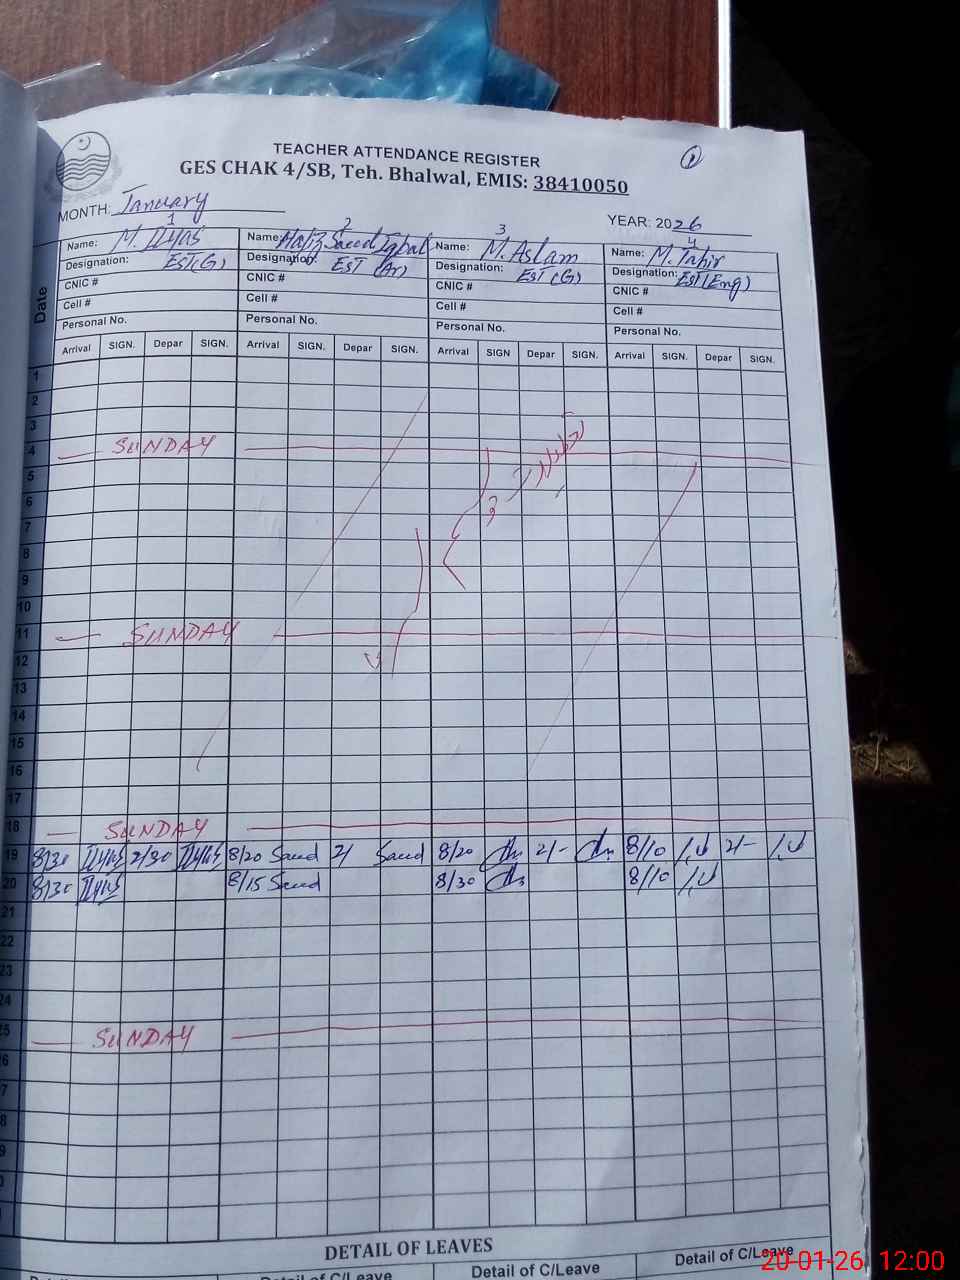 TEACHER ATTENDANCE REGISTER
1
GES CHAK 4/SB, Teh. Bhalwal, EMIS: 38410050
MONTH: January
YEAR: 2026
1 2 3 4
Name: M. Ilyas Name: Hafiz Saeed Iqbal Name: M. Aslam Name: M. Tahir
Designation: EST (G) Designation: EST (Ar) Designation: EST (G) Designation: EST (Eng)
CNIC # CNIC # CNIC # CNIC #
Cell # Cell # Cell # Cell #
Personal No. Personal No. Personal No. Personal No.
Date Arrival SIGN. Depar SIGN. Arrival SIGN. Depar SIGN. Arrival SIGN Depar SIGN. Arrival SIGN. Depar SIGN.
1
2
3
4 SUNDAY
5
6
7
8
9
10
11 SUNDAY
12
13
14
15
16
17
18 SUNDAY
19 8/30 Ilyas 2/30 Ilyas 8/20 Saeed 2/ Saeed 8/20 2/- 8/10 2/-
20 8/30 Ilyas 8/15 Saeed 8/30 8/10
21
22
23
24
5 SUNDAY
6
7
8
9
0
DETAIL OF LEAVES
Detail of C/Leave Detail of C/Leave Detail of C/Leave
20-01-26, 12:00